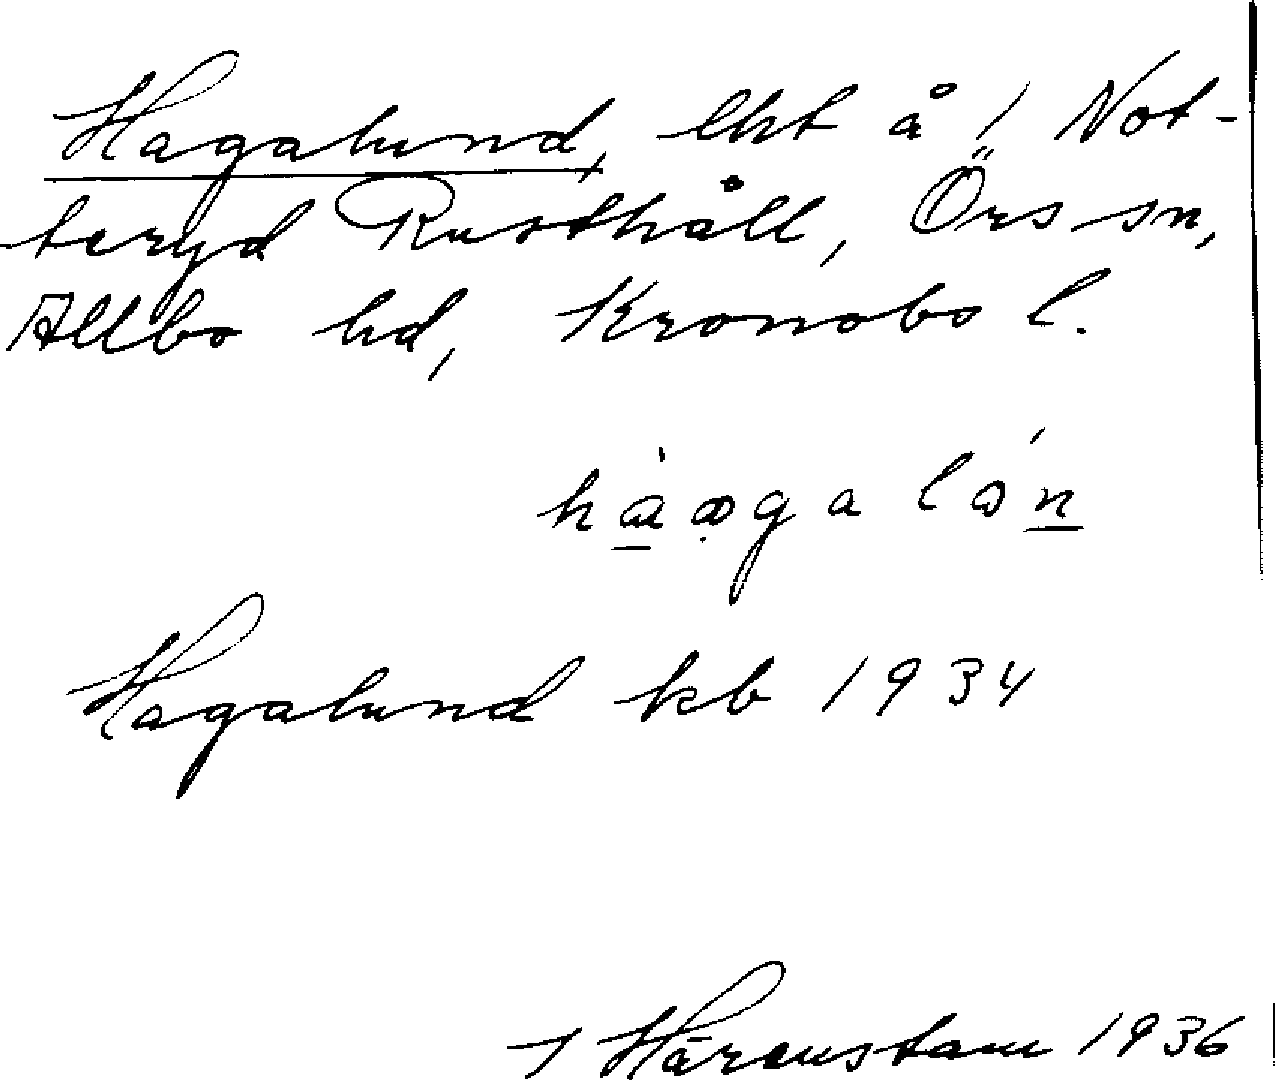 Hagalund, lht å 1 Not-
teryd Rusthåll, Örs sn,
Allbo hd, Kronobs l.
hàagalón
Hagalund kb 1934
J Härenstam 1936